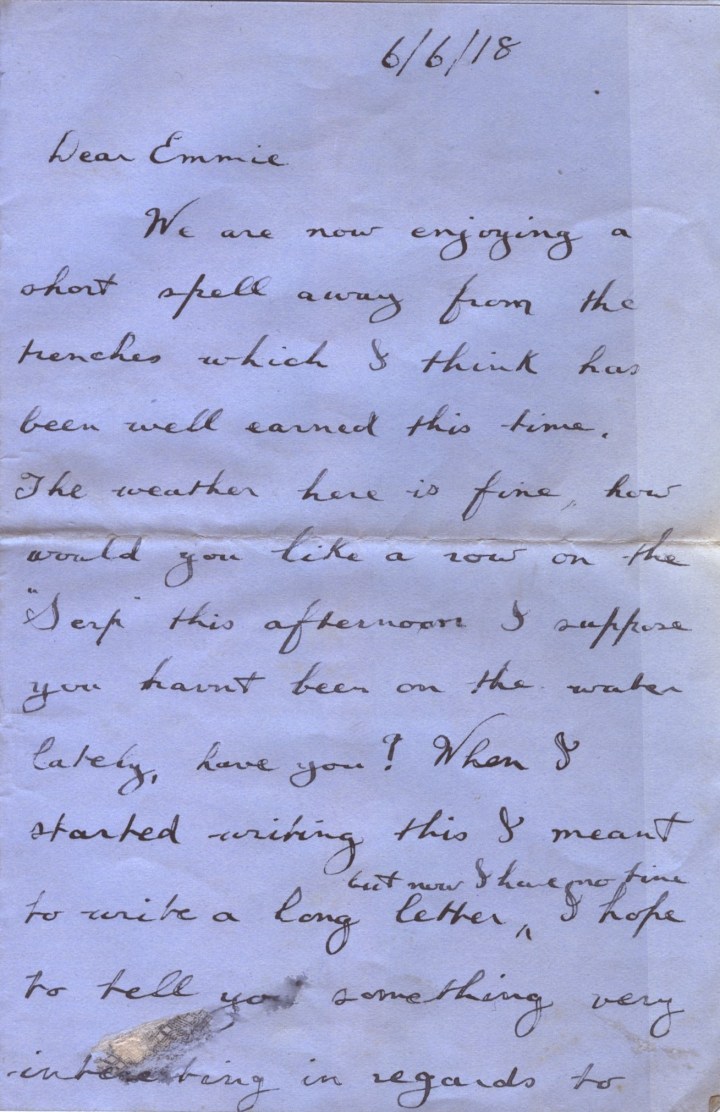 6/6/18
Dear Emmie
We are now enjoying a
short spell away from the
trenches which I think has
been well earned this time.
The weather here is fine, how
would you like a row on the
"Serp" this afternoon I suppose
you havnt been on the water
lately, have you? When I
started writing this I meant
but now I have no time
to write a long letter, I hope
to tell you something very
interesting in regards to